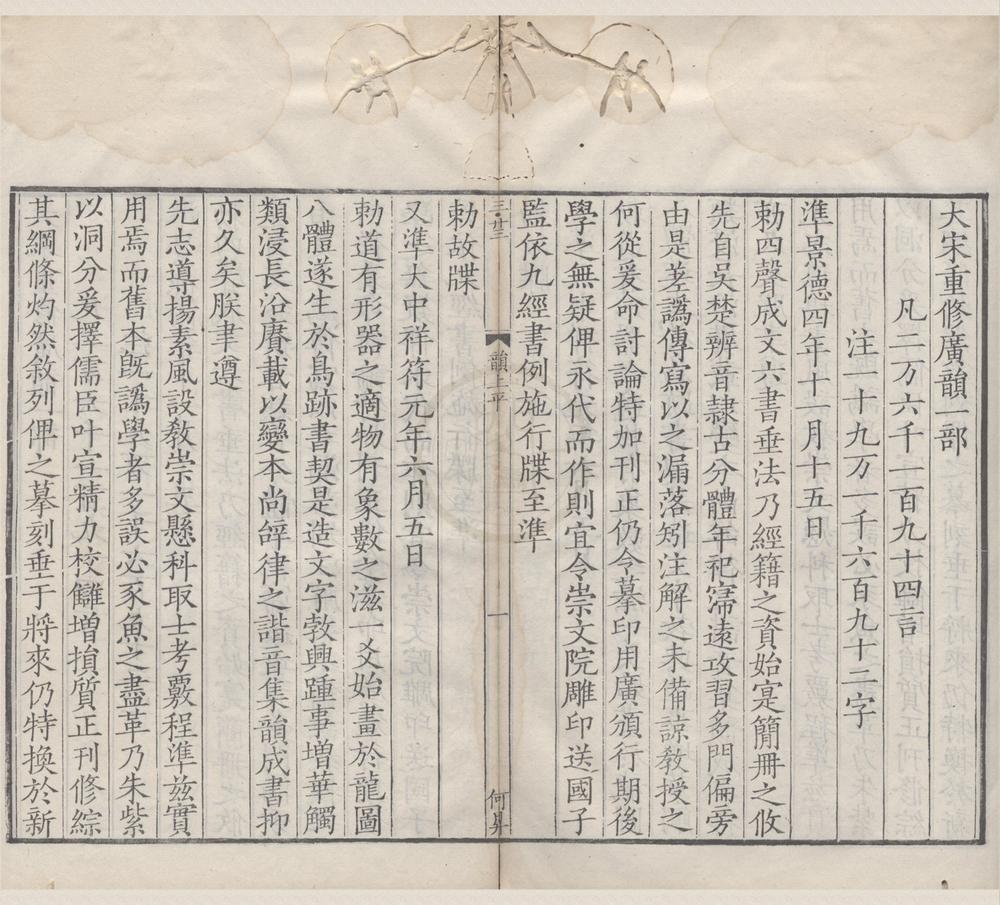 大宋重修廣韻一部
凡二万六千一百九十四言
注一十九万一千六百九十二字
準景德四年十一月十五日
勑四聲成文六書垂法乃經籍之資始寔簡冊之攸
先自吴楚辨音隷古分體年祀寖遠攻習多門偏旁
由是差譌傳寫以之漏落矧注解之未備諒敎授之
何從爰命討論特加刊正仍令摹印用廣頒行期後
學之無疑俾永代而作則宜令崇文院雕印送國子
監依九經書例施行牒至準
勑故牒
韻上平
一
何昇
又準大中祥符元年六月五日
勑道有形器之適物有象數之滋一爻始畫於龍圖
八體遂生於鳥跡書契是造文字勃興踵事增華觸
類浸長沿賡載以變本尚辭律之諧音集韻成書抑
亦久矣朕聿遵
先志導揚素風設敎崇文懸科取士考覈程準兹實
用焉而舊本旣譌學者多誤必豕魚之盡革乃朱紫
以洞分爰擇儒臣叶宣精力校讎增損質正刊修綜
其綱條灼然敘列俾之摹刻垂于將來仍特換於新